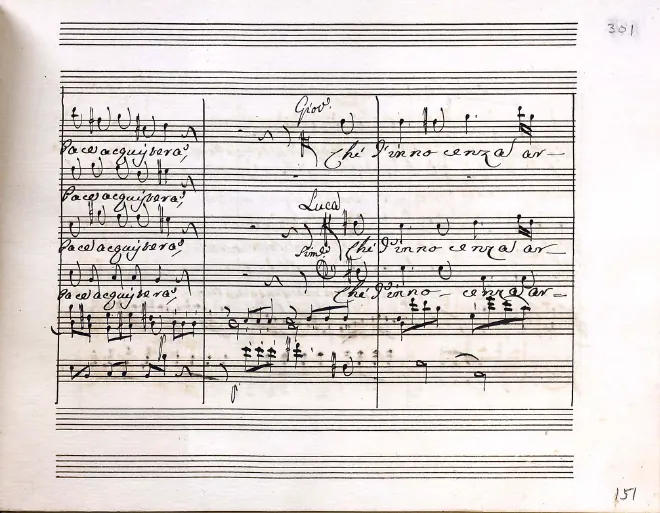 301
Giov.
Pace acquisterà, Chi d'innocenza ar-
Pace acquisterà,
Luca
Pace acquisterà, Chi d'innocenza ar-
Pace acquisterà, Chi d'inno-cenza ar-
p
151